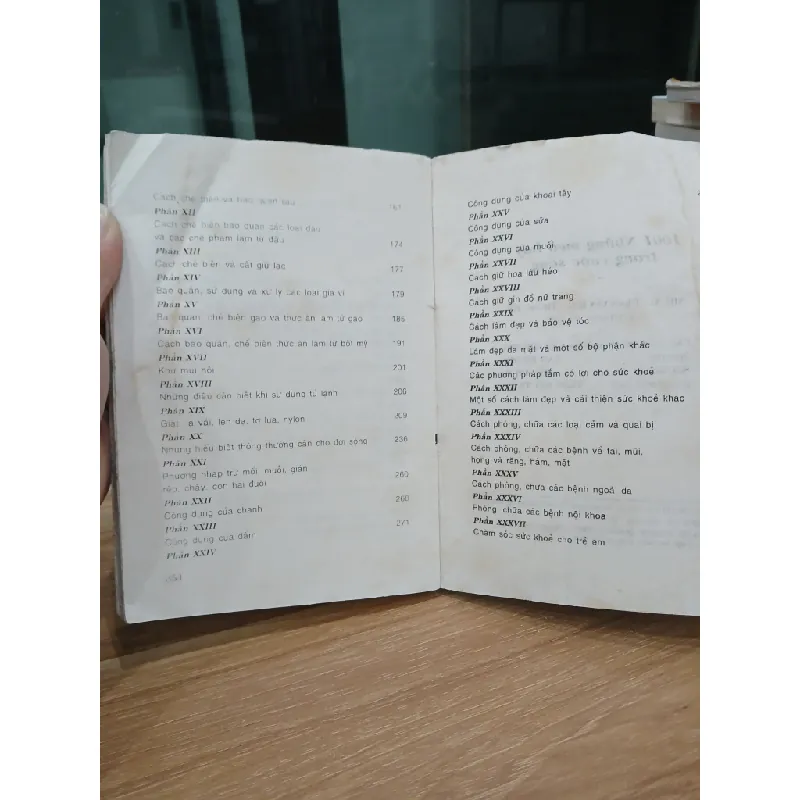 Cách chế biến và bảo quản
Phần XII
Cách chế biến bảo quản các loại đậu
và các chế phẩm làm từ đậu 174
Phần XIII
Cách chế biến và cất giữ lạc 177
Phần XIV
Bảo quản, sử dụng và xử lý các loại gia vị 179
Phần XV
Bảo quản, chế biến gạo và thức ăn làm từ gạo 186
Phần XVI
Cách bảo quản, chế biến thức ăn làm từ bột mỳ 191
Phần XVII
Khử mùi hôi 201
Phần XVIII
Những điều cần biết khi sử dụng tủ lạnh 206
Phần XIX
Giặt là vải, len dạ, tơ lụa, nylon 209
Phần XX
Những hiểu biết thông thường cần cho đời sống 236
Phần XXI
Phương pháp trừ mối, muỗi, gián
rệp, chấy, con hai đuôi 260
Phần XXII
Công dụng của chanh 260
Phần XXIII
Công dụng của dấm 271
Phần XXIV
Công dụng của khoai tây
Phần XXV
Công dụng của sữa
Phần XXVI
Công dụng của muối
Phần XXVII
Cách giữ hoa lâu héo
Phần XXVIII
Cách giữ gìn đồ nữ trang
Phần XXIX
Cách làm đẹp và bảo vệ tóc
Phần XXX
Làm đẹp da mặt và một số bộ phận khác
Phần XXXI
Các phương pháp tắm có lợi cho sức khoẻ
Phần XXXII
Một số cách làm đẹp và cải thiện sức khoẻ khác
Phần XXXIII
Cách phòng, chữa các loại cảm và quai bị
Phần XXXIV
Cách phòng, chữa các bệnh về tai, mũi,
họng và răng, hàm, mặt
Phần XXXV
Cách phòng, chữa các bệnh ngoài da
Phần XXXVI
Phòng, chữa các bệnh nội khoa
Phần XXXVII
Chăm sóc sức khoẻ cho trẻ em